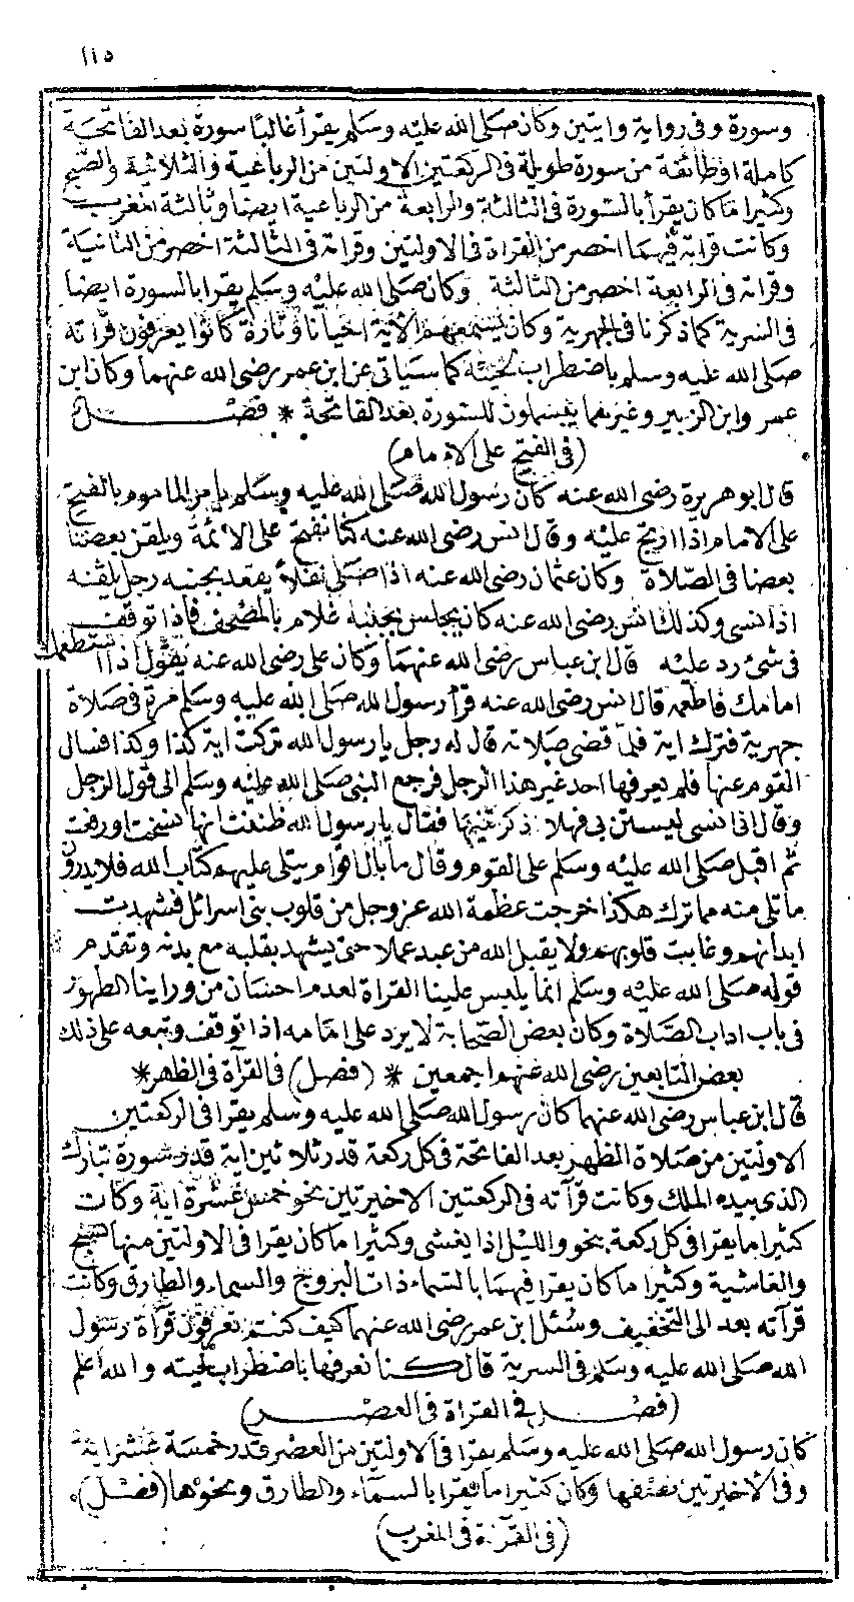 ١١٥
وسورة وفى رواية وايتين وكان صلى الله عليه وسلم يقرأ غالبا سورة بعد الفاتحة
كاملة او طائفة من سورة طويلة فى الركعتين الاولتين من الرباعية والثلاثية والصبح
وكثيرا ما كان يقرأ بالسورة فى الثالثة والرابعة من الرباعية ايضا وثالثة المغرب
وكانت قراته فيهما اخصر من القراة فى الاولتين وقراته فى الثالثة اخصر من الثانية
وقراته فى الرابعة اخصر من الثالثة وكان صلى الله عليه وسلم يقرا بالسورة ايضا
فى السرية كما ذكرنا فى الجهرية وكان يسمعهم الآية احيانا وتارة كانوا يعرفون قراته
صلى الله عليه وسلم باضطراب لحيته كما سياتى عن ابن عمر رضى الله عنهما وكان ابن
عمر وابن الزبير وغيرهما يبسملون للسورة بعد الفاتحة * فصل
(فى الفتح على الامام)
قال ابو هريرة رضى الله عنه كان رسول الله صلى الله عليه وسلم يامر الماموم بالفتح
على الامام اذا ارتج عليه وقال انس رضى الله عنه كنا نفتح على الائمة ويلقن بعضنا
بعضا فى الصلاة وكان عثمان رضى الله عنه اذا صلى نفلا يقعد بجنبه رجل يلقنه
اذا نسى وكذلك انس رضى الله عنه كان يجلس بجنبه غلام بالمصحف فاذا توقف
فى شئ رد عليه قال ابن عباس رضى الله عنهما وكان على رضى الله عنه يقول اذا استطعمك
امامك فاطعمه قال انس رضى الله عنه قرأ رسول الله صلى الله عليه وسلم مرة فى صلاة
جهرية فترك اية فلما قضى صلاته قال له رجل يا رسول الله تركت اية كذا وكذا فسال
القوم عنها فلم يعرفها احد غير هذا الرجل فرجع النبى صلى الله عليه وسلم الى قول الرجل
وقال انى انسى ليستن بى فهلا ذكرتنيها فقال يا رسول الله ظننت انها نسخت او رفعت
ثم اقبل صلى الله عليه وسلم على القوم وقال ما بال اقوام يتلى عليهم كتاب الله فلا يدرون
ما تلى منه مما ترك هكذا خرجت عظمة الله عز وجل من قلوب بنى اسرائل فشهدت
ابدانهم وغابت قلوبهم ولا يقبل الله من عبد عملا حتى يشهد بقلبه مع بدنه وتقدم
قوله صلى الله عليه وسلم انما يلبس علينا القراة لعدم احسان من وراينا الطهور
فى باب اداب الصلاة وكان بعض الصحابة لا يرد على امامه اذا توقف وتبعه على ذلك
بعض التابعين رضى الله عنهم اجمعين * (فصل) فى القرآة فى الظهر *
قال ابن عباس رضى الله عنهما كان رسول الله صلى الله عليه وسلم يقرا فى الركعتين
الاولتين من صلاة الظهر بعد الفاتحة فى كل ركعة قدر ثلاثين اية قدر سورة تبارك
الذى بيده الملك وكانت قرآته فى الركعتين الاخيرتين نحو خمس عشرة اية وكان
كثيرا ما يقرا فى كل ركعة بنحو والليل اذا يغشى وكثيرا ما كان يقرا فى الاولتين منها بسبح
والغاشية وكثيرا ما كان يقرا فيهما بالسماء ذات البروج والسماء والطارق وكانت
قرآته بعد الى التخفيف وسئل ابن عمر رضى الله عنهما كيف كنتم تعرفون قرآة رسول
الله صلى الله عليه وسلم فى السرية قال كنا نعرفها باضطراب لحيته والله اعلم
(فصل فى القراة فى العصر)
كان رسول الله صلى الله عليه وسلم يقرا فى الاولتين من العصر قدر خمسة عشر اية
وفى الاخيرتين نصفها وكان كثيرا ما يقرا بالسماء والطارق ونحوها (فصل)
(فى القرآة فى المغرب)